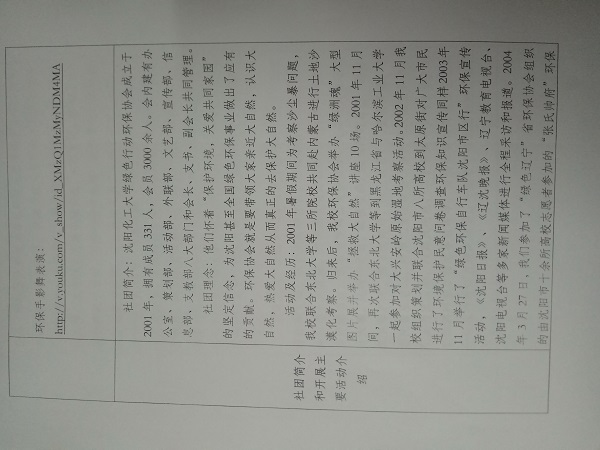 环保手影舞表演：
http://v.youku.com/v_show/id_XMzQ1MzMyNDM4MA
社团简介
和开展主
要活动介
绍
社团简介：沈阳化工大学绿色行动环保协会成立于
2001年，拥有成员331人，会员3000余人。会内建有办
公室、策划部、活动部、外联部、文艺部、宣传部、信
息部、支教部八大部门和会长、支书、副会长共同管理。
社团理念：他们怀着“保护环境，关爱共同家园”
的坚定信念，为沈阳甚至全国绿色环保事业做出了应有
的贡献。环保协会就是要带领大家亲近大自然，认识大
自然，热爱大自然从而真正的去保护大自然。
活动及经历：2001年暑假期间为考察沙尘暴问题，
我校联合东北大学等三所院校共同赴内蒙古进行土地沙
漠化考察。归来后，我校环保协会举办“绿洲魂”大型
图片展并举办“拯救大自然”讲座10场。2001年11月
间，再次联合东北大学等到黑龙江省与哈尔滨工业大学
一起参加对大兴安岭原始湿地考察活动。2002年11月我
校组织策划并联合沈阳市八所高校到太原街对广大市民
进行了环境保护民意问卷调查环保知识宣传同样2003年
11月举行了“绿色环保自行车队沈阳市区行”环保宣传
活动，《沈阳日报》、《辽沈晚报》、辽宁教育电视台、
沈阳电视台等多家新闻媒体进行全程采访和报道。2004
年3月27日，我们参加了“绿色辽宁”省环保协会组织
的由沈阳市余所高校志愿者参加的“张氏帅府”环保